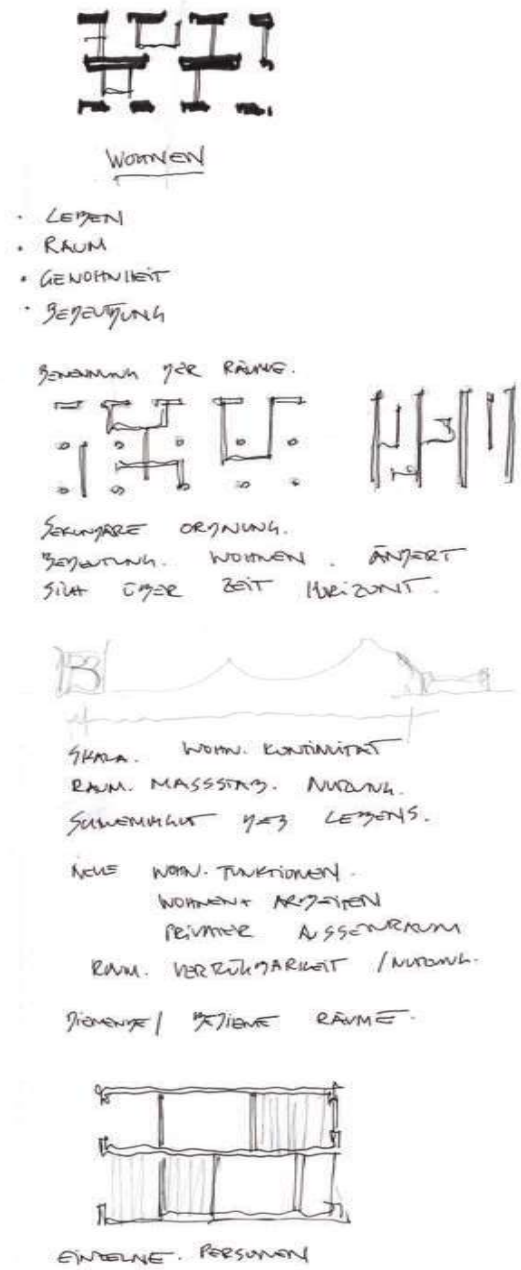 WOHNEN
· LEBEN
· RAUM
· GEWOHNHEIT
· BEDEUTUNG
BENENNUNG DER RÄUME.
SEKUNDÄRE ORDNUNG.
BEDEUTUNG. WOHNEN. ÄNDERT
SICH ÜBER ZEIT HORIZONT.
B
SKALA. WOHN. KONTINUITÄT
RAUM. MASSSTAB. NUTZUNG.
DES LEBENS.
NEUE WOHN. FUNKTIONEN.
WOHNEN + ARBEITEN
PRIVATER AUSSENRAUM
RAUM. VERFÜGBARKEIT / NUTZUNG.
DIENENDE / BEDIENE RÄUME.
EINZELNE. PERSONEN